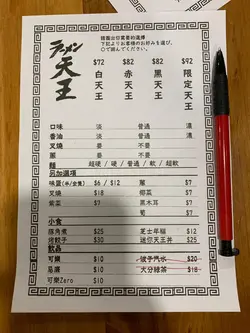 請圈出你需要的選擇
下記よりお客様のお好みを選び、
○で囲んでください。
ラーメン
天王
$72 $82 $82 $92
白天王 赤天王 黑天王 限定天王
口味 淡 普通 濃
香油 淡 普通 濃
叉燒 要 不要
蔥 要 不要
麵 超硬 / 硬 / 普通 / 軟 / 超軟
另加選項
味蛋(半/全隻) $6 / $12 蔥 $7
叉燒 $18 椰菜 $7
紫菜 $7 黑木耳 $7
筍 $7
小食
豚角煮 $25 芝士年糕 $12
烤餃子 $30 迷你天王丼 $25
飲品
可樂 $10 波子汽水 $20
忌廉 $10 大分綠茶 $18
可樂Zero $10